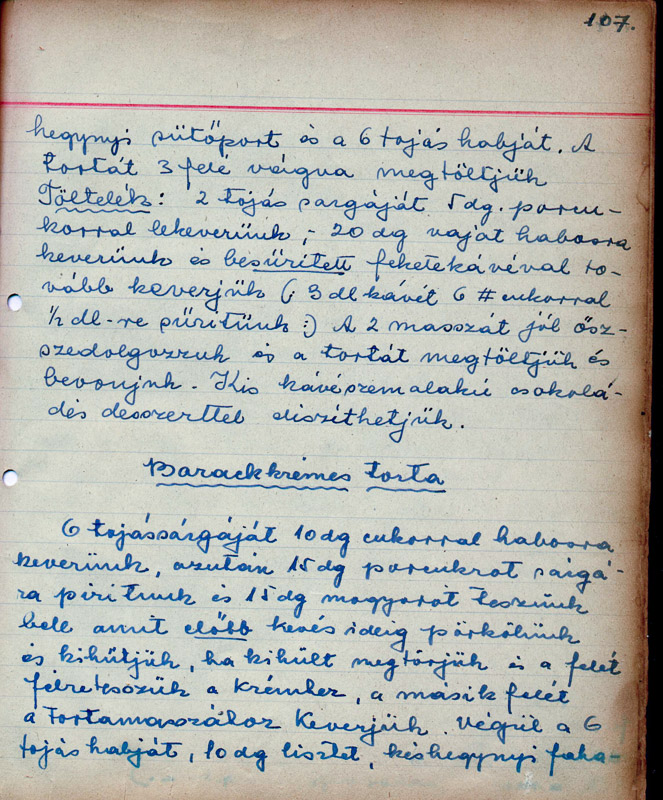 107.
hegynyi sütőport és a 6 tojás habját. A
tortát 3 felé vágva megtöltjük
Töltelék: 2 tojás sargáját 5 dg. porcu-
korral lekeverünk, - 20 dg vaját habosra
keverünk és besűritett feketekávéval to-
vább keverjük (: 3 dl kávét 6 # cukorral
½ dl-re sűritünk :) A 2 masszát jól ösz-
szedolgozzuk és a tortát megtöltjük és
bevonjuk. Kis kávészem alakú csokolá-
dés desszerttel diszithetjük.
Barackkrémes torta
6 tojássárgáját 10 dg cukorral habosra
keverünk, azután 15 dg porcukrot sárgá-
ra piritunk és 15 dg mogyorót teszünk
bele amit előbb kevés ideig pörkölünk
és kihűtjük, ha kihült megtörjük és a felét
félretesszük a krémhez, a másik felét
a tortamasszához keverjük. Végül a 6
tojás habját, 10 dg lisztet, késhegynyi faha-